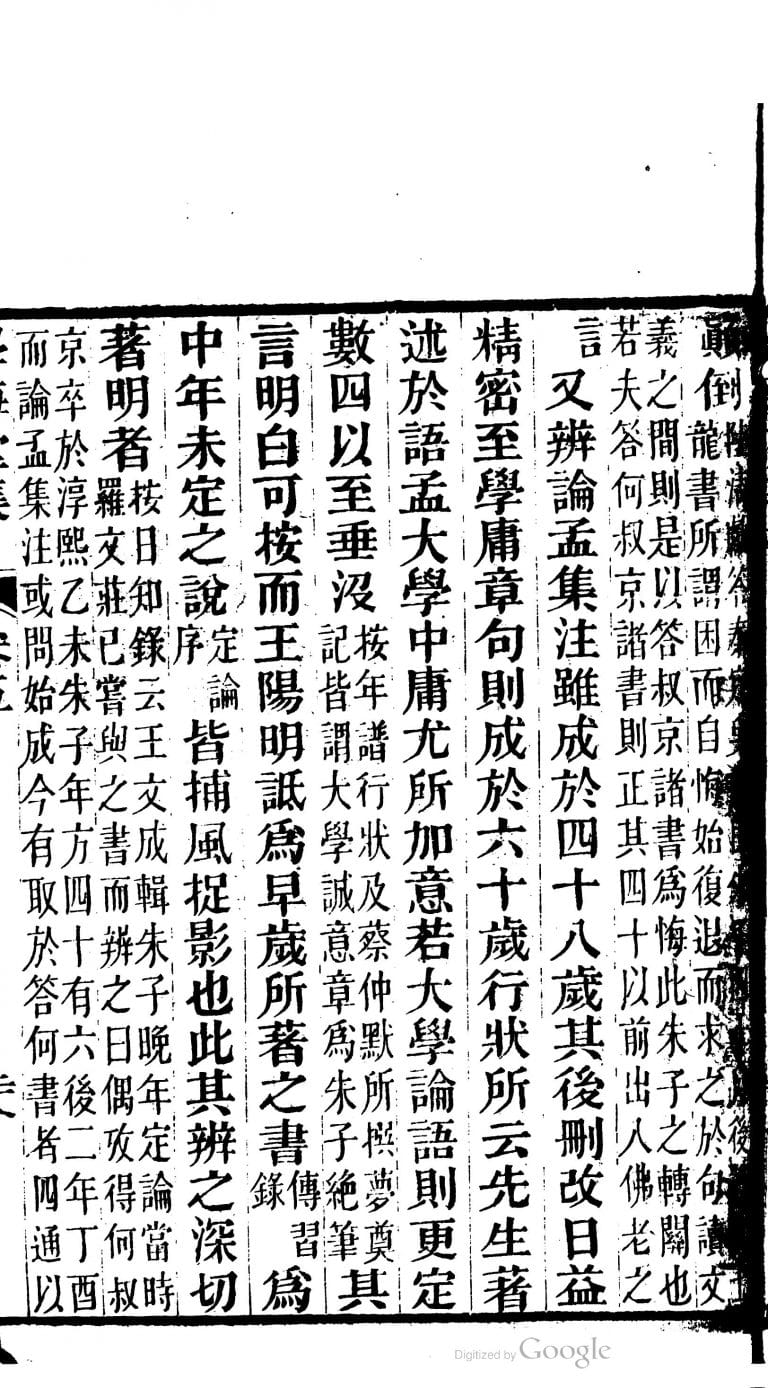 顛倒
龍書所謂困而自悔始復退而求之於句讀文
義之間則是以答叔京諸書爲悔此朱子之轉關也
若夫答何叔京諸書則正其四十以前出入佛老之
言
又辨論孟集注雖成於四十八歲其後刪改日益
精密至學庸章句則成於六十歲行狀所云先生著
述於語孟大學中庸尤所加意若大學論語則更定
數四以至垂沒
按年譜行狀及蔡仲默所撰夢奠
記皆謂大學誠意章爲朱子絶筆
其
言明白可按而王陽明詆爲早歲所著之書
傳習
錄
爲
中年未定之說
定論
序
皆捕風捉影也此其辨之深切
著明者
按日知錄云王文成輯朱子晚年定論當時
羅文莊已嘗與之書而辨之曰偶攷得何叔
京卒於淳熙乙未朱子年方四十有六後二年丁酉
而論孟集注或問始成今有取於答何書者四通以
Digitized by Google